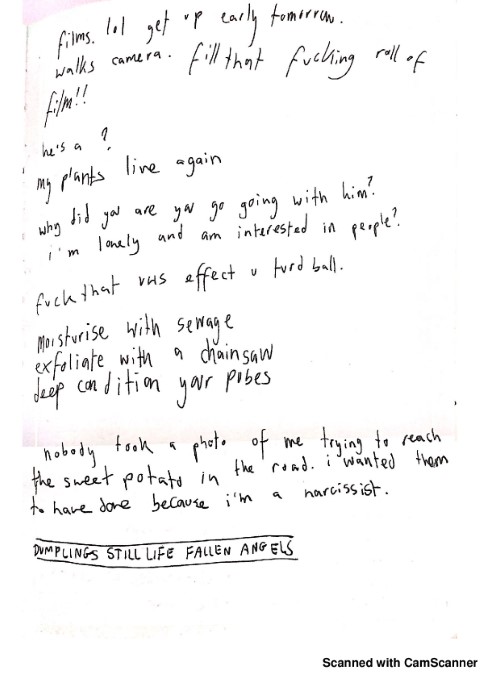 films. lol get up early tomorrow.
walks camera. fill that fucking roll of
film!!
he's a ?
my plants live again
why did you are you go going with him?
i'm lonely and am interested in people?
fuck that VHS effect u turd ball.
Moisturise with sewage
exfoliate with a chainsaw
deep condition your pubes
nobody took a photo of me trying to reach
the sweet potato in the road. i wanted them
to have done because i'm a narcissist.
DUMPLINGS STILL LIFE FALLEN ANGELS
Scanned with CamScanner